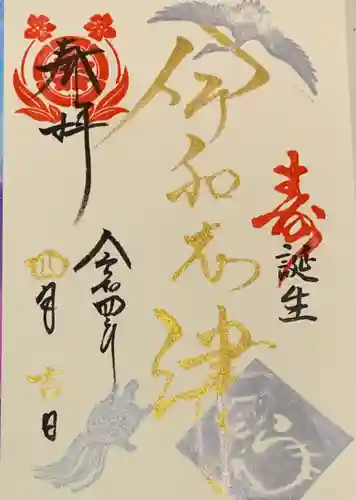 寿
誕生
伊和志津
奉拝
令和四年
八月吉日